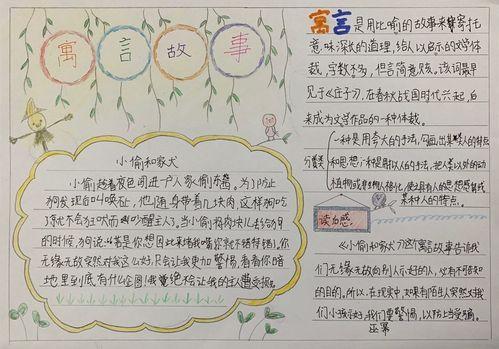 寓言故事
小偷和家犬
小偷趁着夜色闯进一户人家偷东西。为了防止
狗发现后叫唤他，他随身带着几块肉，这样狗吃
了就不会狂吠而叫醒主人了。当小偷将肉块儿丢给狗
的时候，狗说："若是你想因此来堵我嘴你就不错特错，你
无缘无故突然对我这么好，只会让我更加警惕，看看你暗
地里到底有什么企图！我绝不会让我的主人遭受损
寓言是用比喻的故事来寄托
意味深长的道理，给人以启示的文学体
裁，字数不多，但言简意赅。该词最早
见于《庄子》，在春秋战国时代兴起，后
来成为文学作品的一种体裁。
一种是用夸大的手法，勾画出某些人的特点
分类 和思想；一种是用拟人的手法，把人类以外的动
植物或非生物人格化，使之具有人的思想感情或
某种人的特点。
读后感：
《小偷和家犬》这个寓言故事告诉我
们无缘无故向别人示好的人，必有不可告知
的目的。所以，在现实中，如果有陌生人突然对我
们小孩子好，我们要警惕，以防上当受骗。